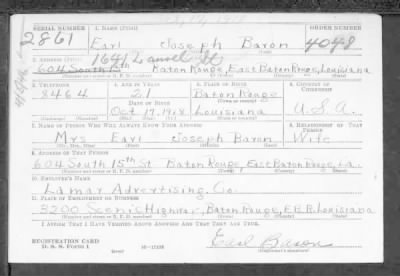 SERIAL NUMBER 1. NAME (Print) ORDER NUMBER
2861 Earl Joseph Baron 4048
1641 Laurel St
2. ADDRESS (Print)
604 South 15th Baton Rouge, East Baton Rouge, Louisiana
3. TELEPHONE 4. AGE IN YEARS 5. PLACE OF BIRTH 6. COUNTRY OF CITIZENSHIP
21 Baton Rouge
DATE OF BIRTH
Oct 17, 1918 Louisiana U.S.A.
7. NAME OF PERSON WHO WILL ALWAYS KNOW YOUR ADDRESS 8. RELATIONSHIP OF THAT PERSON
Mrs Earl Joseph Baron Wife
9. ADDRESS OF THAT PERSON
604 South 15th St. Baton Rouge, East Baton Rouge, La.
10. EMPLOYER'S NAME
Lamar Advertising Co.
11. PLACE OF EMPLOYMENT OR BUSINESS
3200 Scenic Highway, Baton Rouge, E.B.R. Louisiana
I AFFIRM THAT I HAVE VERIFIED ABOVE ANSWERS AND THAT THEY ARE TRUE.
REGISTRATION CARD
D. S. S. Form 1
Earl Baron